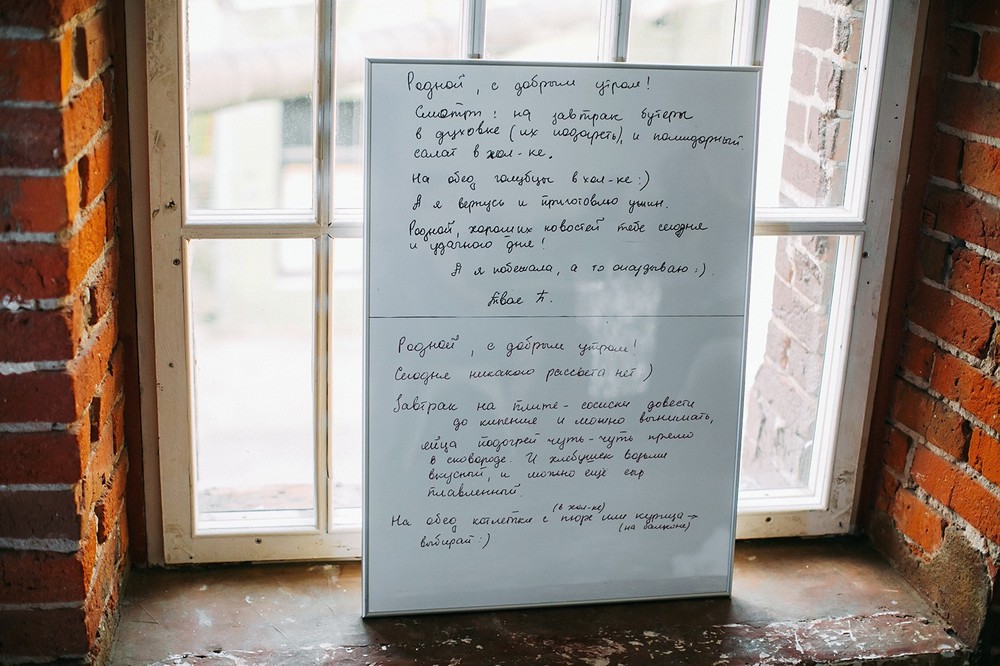 Родной, с добрым утром!
Смотри: на завтрак бутеры
в духовке (их подогреть), и помидорный
салат в хол-ке.
На обед голубцы в хол-ке :)
А я вернусь и приготовлю ужин.
Родной, хороших новостей тебе сегодня
и удачного дня!
А я побежала, а то опаздываю :).
Твоя
Родной, с добрым утром!
Сегодня никакого рассвета нет :)
Завтрак на плите - сосиски довести
до кипения и можно вынимать,
яйца подогрей чуть-чуть прямо
в сковороде. И хлебушек возьми
вкусный, и можно ещё сыр
плавленный.
На обед котлетки с пюре (в хол-ке) или курица → (на балконе)
выбирай :)